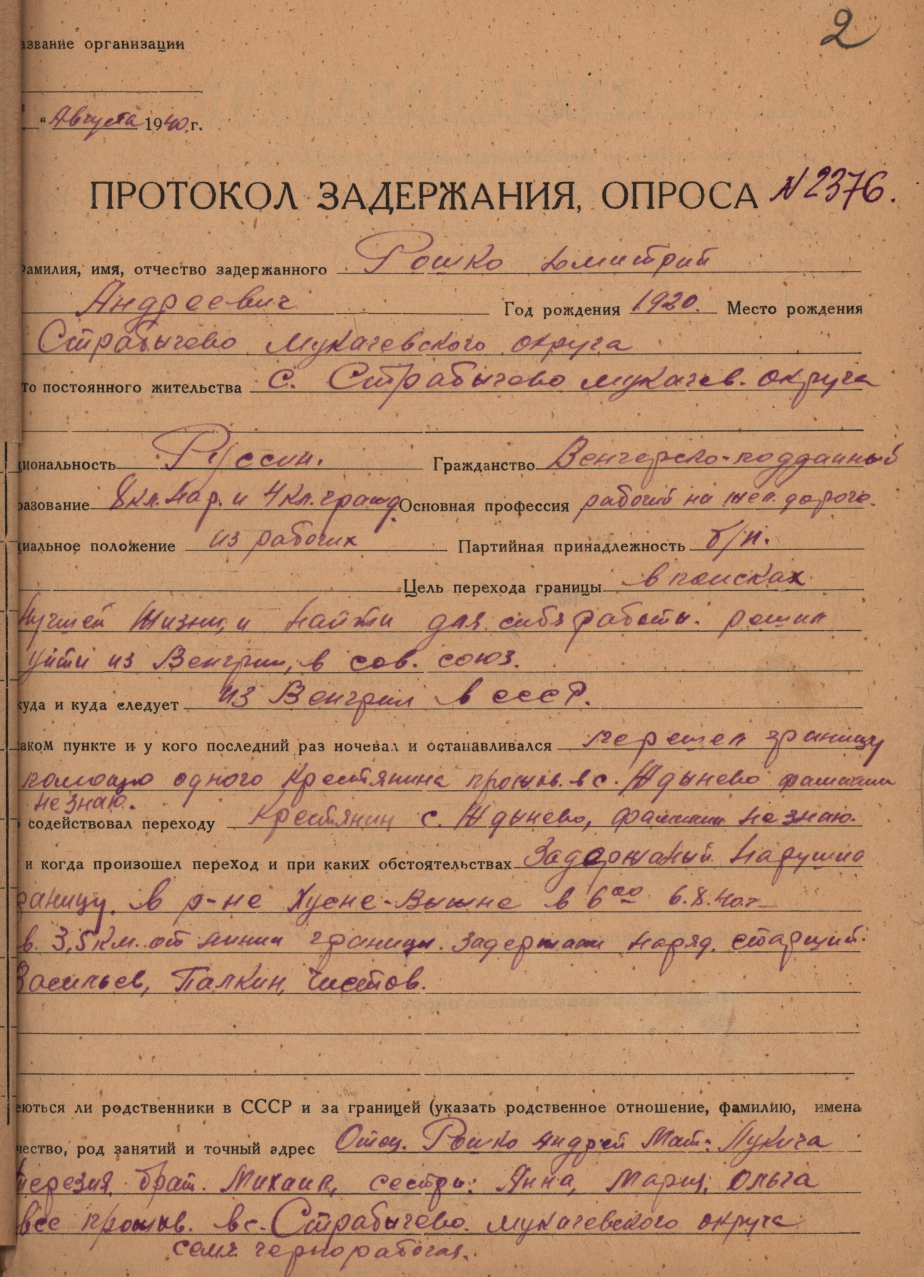 2
азвание организации
"Августа 1940 г.
ПРОТОКОЛ ЗАДЕРЖАНИЯ, ОПРОСА N 2376.
амилия, имя, отчество задержанного Рошко Дмитрий
Андреевич Год рождения 1920. Место рождения
Страбычево Мукачевского округа
то постоянного жительства с. Страбычево Мукачев. округа
циональность Руссин. Гражданство Венгерско-подданный
разование 8 кл. нар. и 4 кл. гражд. Основная профессия рабочий на жел. дороге.
циальное положение из рабочих Партийная принадлежность б/п.
Цель перехода границы в поисках
лучшей жизни, и найти для себя работы. решил
уйти из Венгрии, в сов. союз.
куда и куда следует из Венгрии в СССР.
аком пункте и у кого последний раз ночевал и останавливался перешел границу
помощью одного крестянина прожив. в с. Ждынево фамилии
не знаю.
содействовал переходу Крестянин с. Ждынево, фамилии не знаю.
и когда произошел переход и при каких обстоятельствах Задержаный нарушил
границу. в р-не Хусне-Вышне в 6 00 6.8.40г.
в 3,5 км. от линии границы. Задержали наряд. старший.
Васильев, Палкин, Чистов.
еються ли родственники в СССР и за границей (указать родственное отношение, фамилию, имена
чество, род занятий и точный адрес Отец. Рошко Андрей Мат. Лукича
терезия, брат. Михаил, сестры: Анна, Мария, Ольга
все прожив. в с. Страбычево. Мукачевского округа
семья чернорабочая.